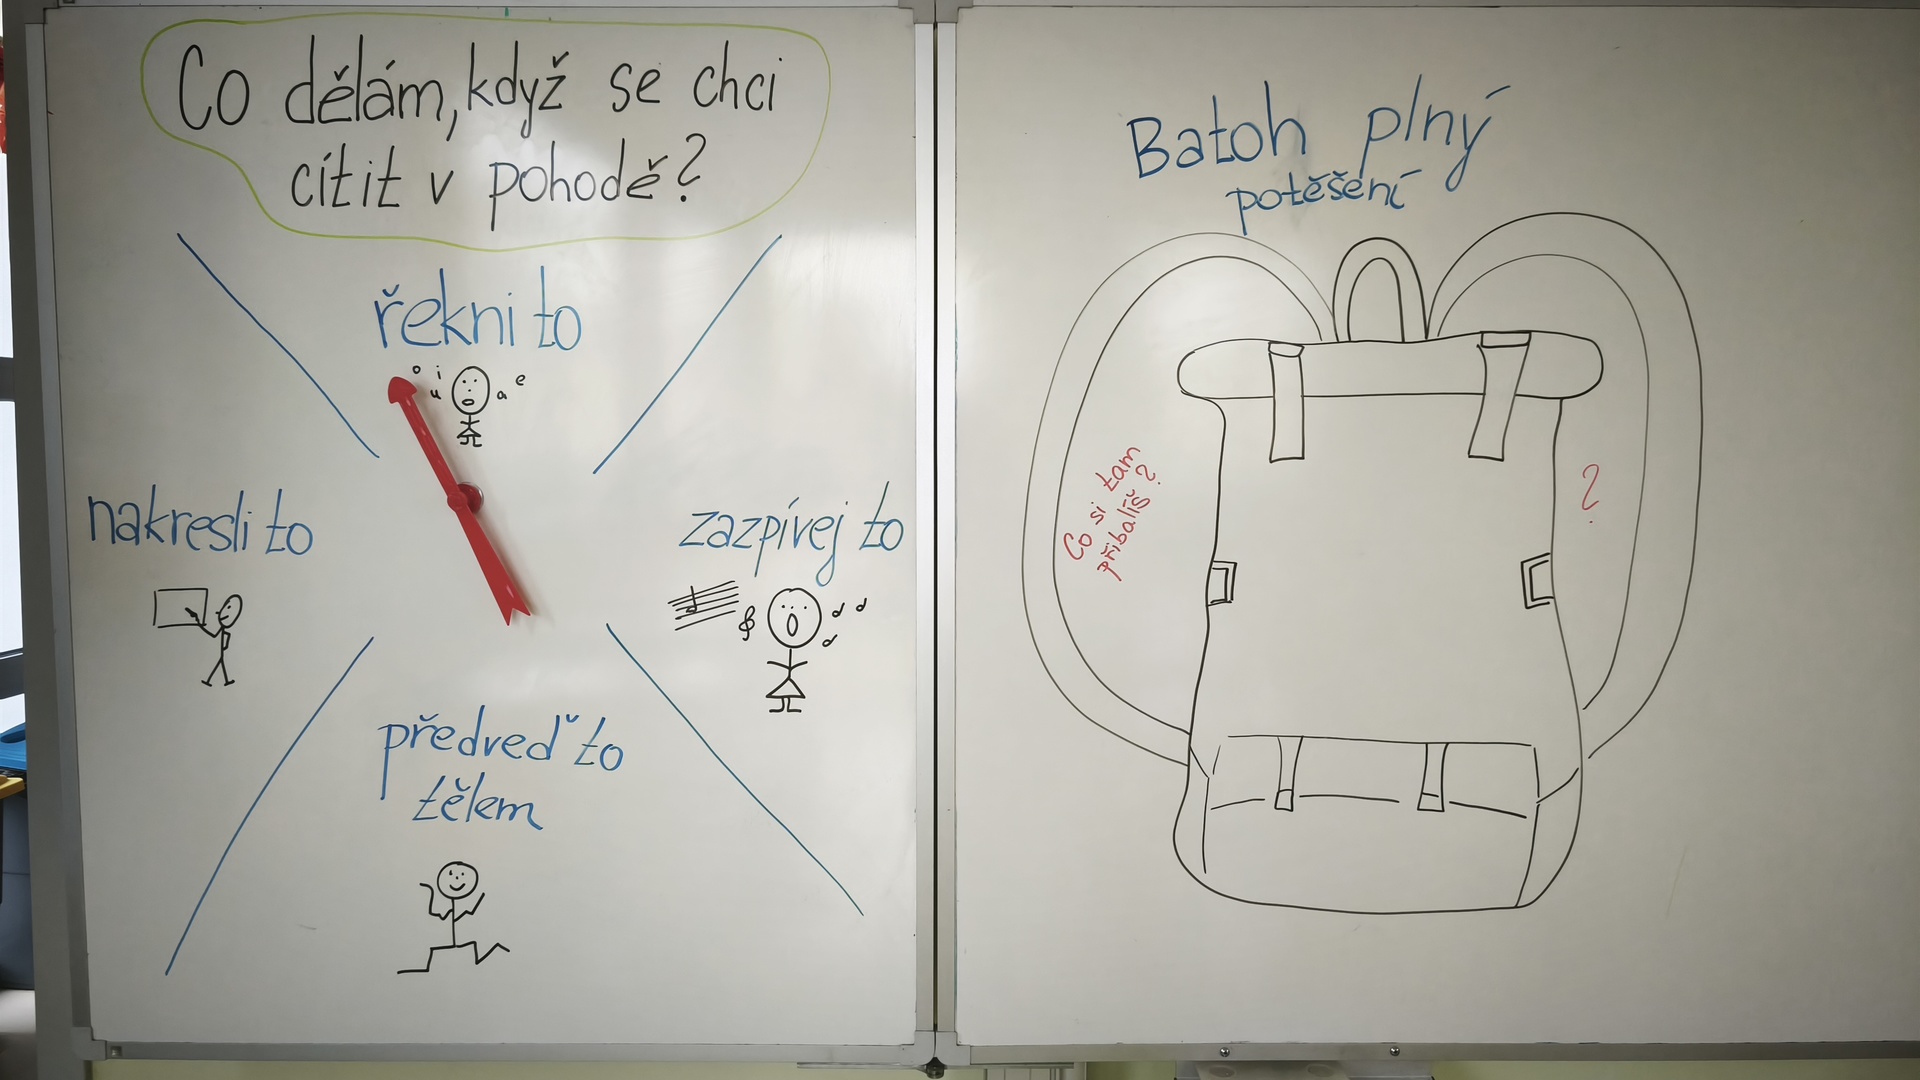 Co dělám, když se chci
cítit v pohodě?
řekni to
o i u a e
nakresli to
zazpívej to
předveď to
tělem
Batoh plný
potěšení
Co si tam
přibalíš?
?